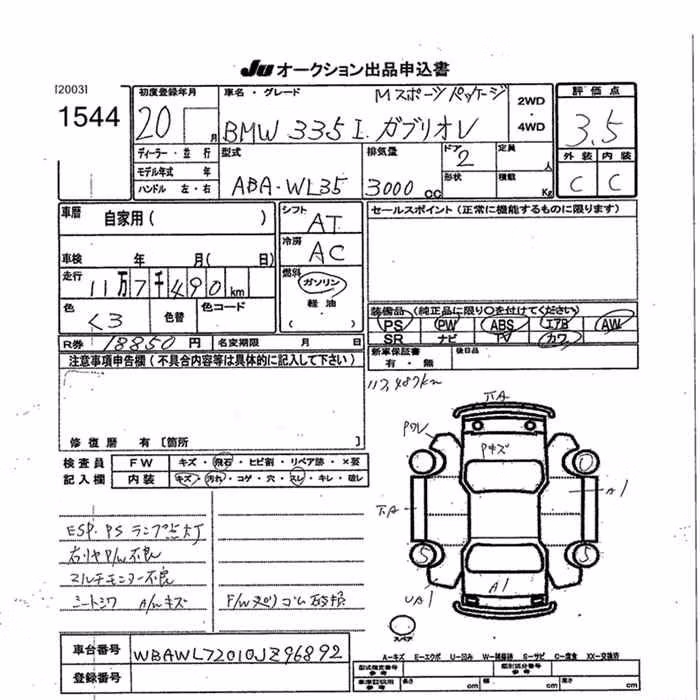 JU オークション出品申込書
[2003]
1544
初度登録年月
20 月
車名・グレード
Mスポーツパッケージ
BMW 335I. カブリオレ
2WD
・
4WD
評価点
3.5
外装 内装
C C
ディーラー・並行
モデル年式 年
ハンドル 左・右
型式
ABA-WL35
排気量
3000 cc
ドア
2
形状
定員
人
積載
Kg
車歴
自家用( )
車検 年 月( 日)
走行
11万7千490km
色
くろ
色替
色コード
R券 18850円
名変期限 月 日
シフト
AT
冷房
AC
燃料
ガソリン
軽油
( )
セールスポイント(正常に機能するものに限ります)
装備品(純正品に限り○を付けてください)
PS PW ABS エアB AW
SR ナビ TV カワ
新車保証書
有・無
後日品
注意事項申告欄(不具合内容等は具体的に記入して下さい)
修復歴 有[箇所 ]
検査員
記入欄
FW キズ・飛石・ヒビ割・リペア跡・×要
内装 キズ・汚れ・コゲ・穴・スレ・キレ・破レ
ESP.PSランプ点灯
右リヤP/W不良
マルチモニター不良
シートシワ A/Wキズ
F/Wメリゴム破損
117,487km
Pキズ
A1
A1
UA1
5
5
スペア
A―キズ E―エクボ U―凹み W―補修跡 S―サビ C―腐食 XX―交換済
車台番号 WBAWL72010JZ96892
登録番号
型式指定番号
類別区分番号
長さ cm
幅 cm
高さ cm